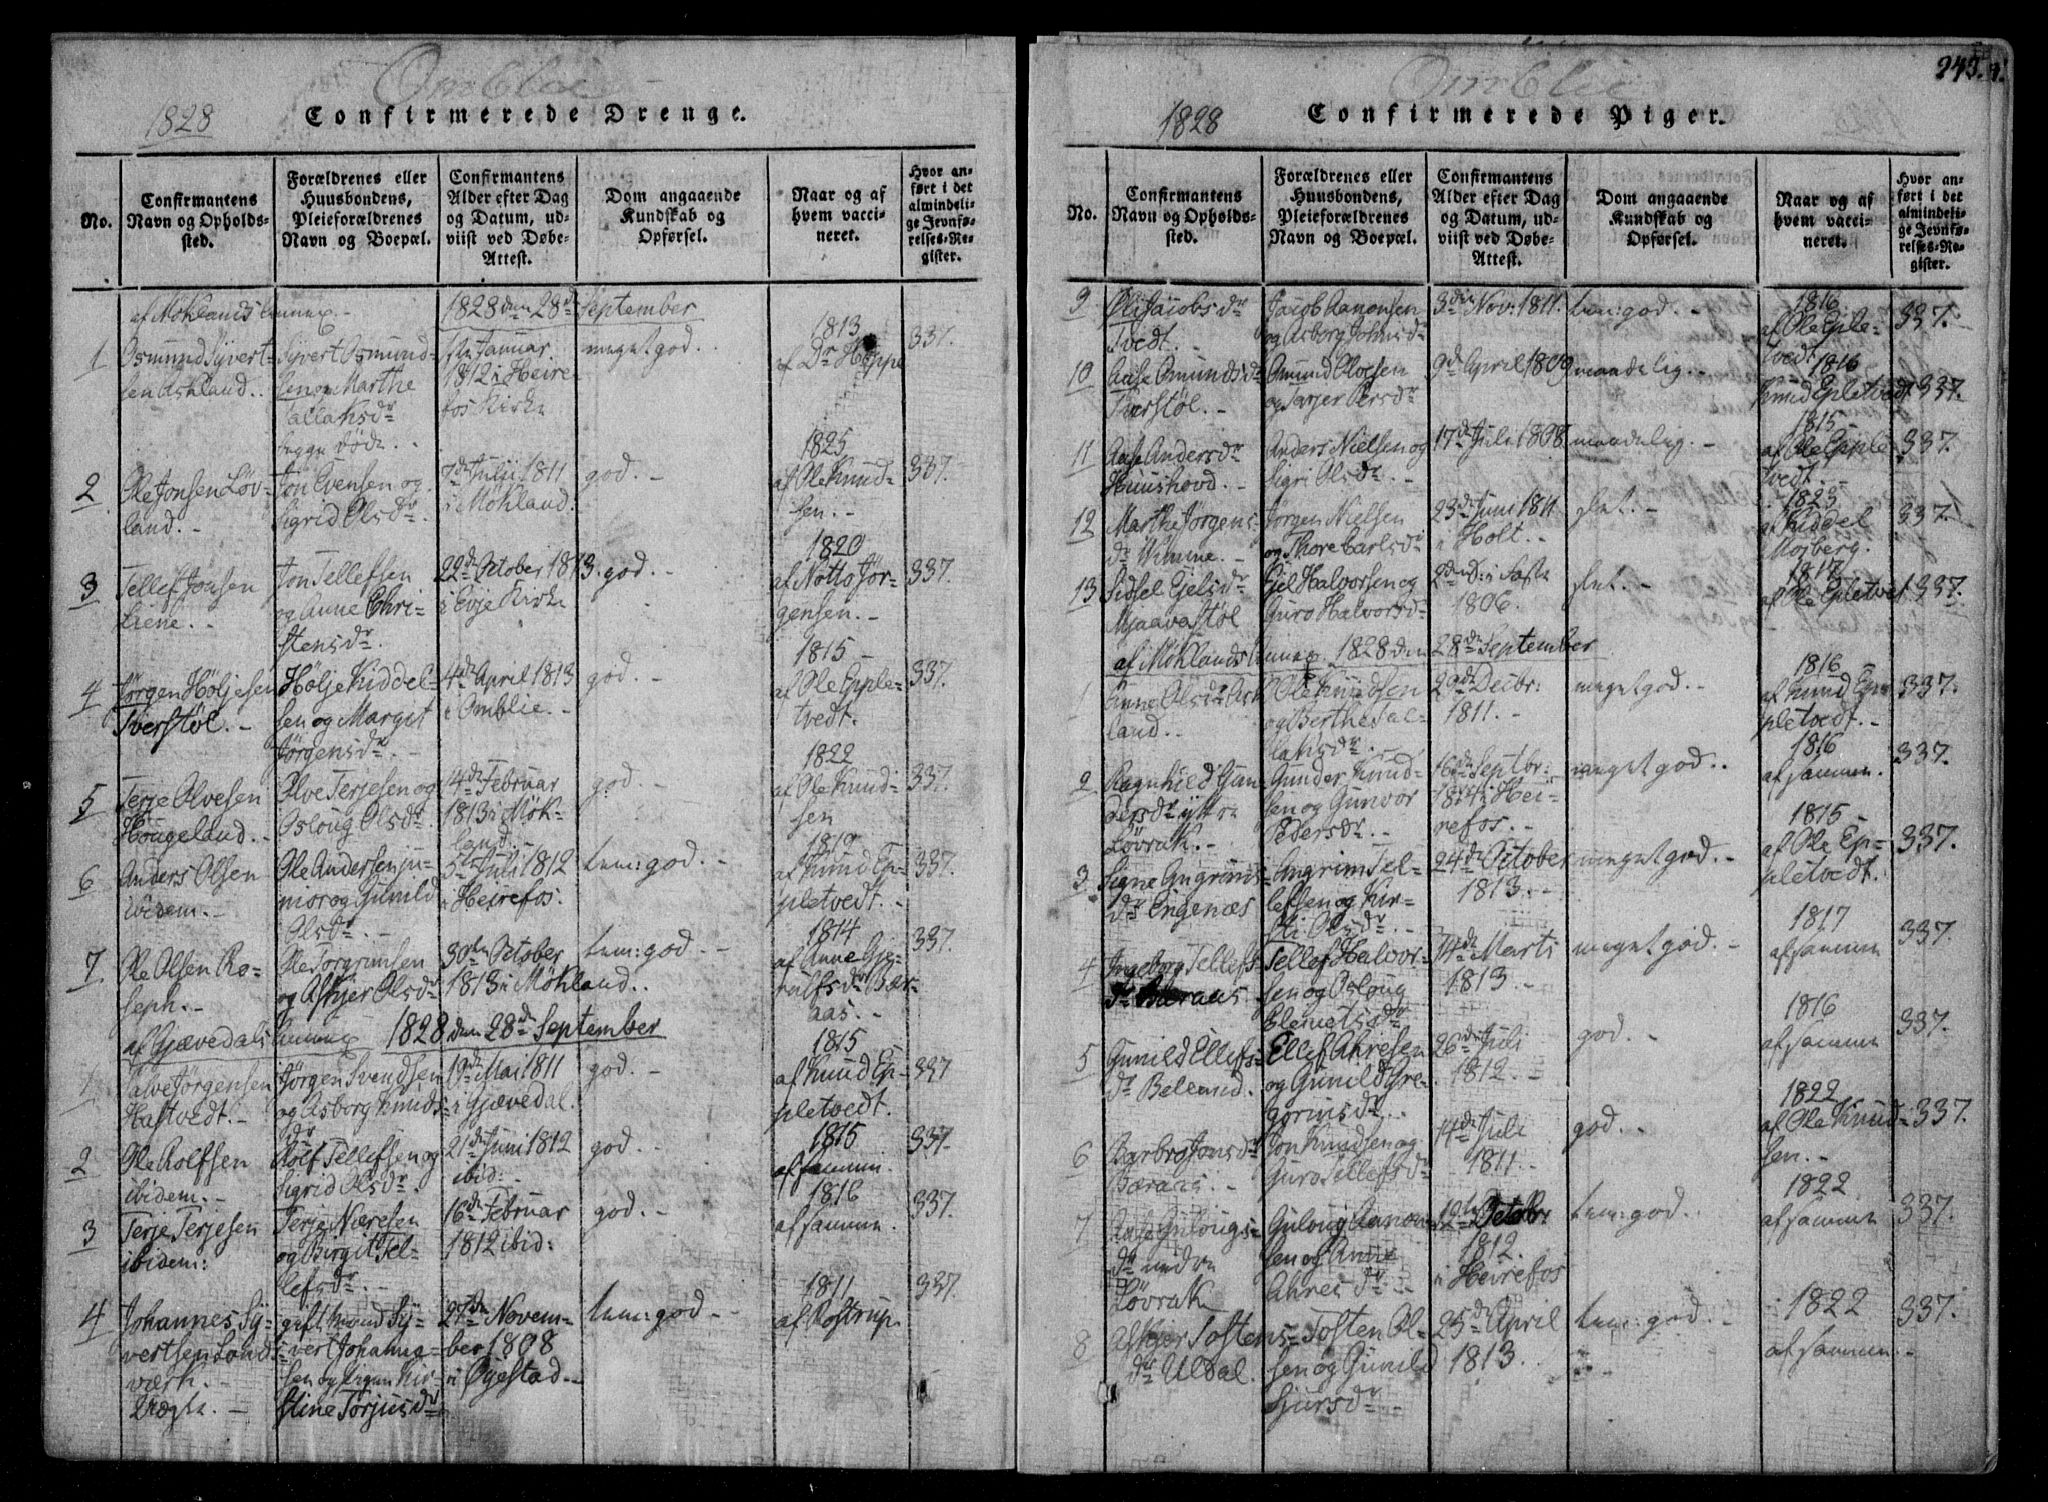 Omblie
1828
Confirmerede Drenge.
No.
Confirmantens
Navn og Opholds-
sted.
Forældrenes eller
Huusbondens,
Pleieforældrenes
Navn og Boepæl.
Confirmantens
Alder efter Dag
og Datum, ud-
viist ved Døbe-
Attest.
Dom angaaende
Kundskab og
Opførsel.
Naar og af
hvem vacci-
neret.
Hvor an-
ført i det
almindeli-
ge Jevnfø-
relses-Re-
gister.
af Møklands Annex. - 1828 den 28de September
1
Osmund Syvert-
sen Askland. .
Syvert Osmund-
sen og Marthe
Tallaksdr
Januar
1812 i Heire-
fos Kirke
meget god. .
1813
af Dr Hoppe
337.
2
Ole Jonsen Løv-
land. -
Jon Evensen og
Sigrid Olsdr.
7de Julii 1811
i Møkland.
god. -
1825
af Ole Knud-
sen. -
337.
3
Tellef Jonsen
Liene. -
Jon Tellefsen
og Anne Chri-
stensdr.
22de October 1813.
i Evje Kirke
god. -
1820
af Notto Jør-
gensen. -
337.
4
Jørgen Höljesen
Tverstøl. -
Hölje Kiddel-
sen og Margit
Jørgensdr. -
4de April 1813
i Omblie. -
god. -
1815 -
af Ole Epple-
tvedt.
337.
5
Terje Olvesen
Hougeland. -
Olve Terjesen og
Osloug Olsdr.
14de Februar
1813 i Møk-
land. -
god. -
1822
af Ole Knud-
sen
337.
6
Anders Olsen
ibidem. -
Ole Andersen ju-
nior og Gunild
Olsdr. -
5te Juli 1812
i Heirefos.
tem: god. -
1819
af Knud Ep-
pletvedt. -
337.
7
Ole Olsen Ro-
seph. -
Ole Torgrimsen
og Askjer Olsdr
30te October
1813 i Møkland. .
tem: god. -
1814
af Anne Gje-
rulfsdr Bær-
aas. -
337.
af Gjævedals Annex 1828 den 28de September
1
Talve Jørgensen
Hastvedt. -
Jørgen Svendsen
og Asborg Knuds-
dr
19de Mai 1811
i Gjævedal.
god. -
1815
af Knud Ep-
pletvedt.
337
2
Ole Rolfsen
ibidem. -
Rolf Tellefsen og
Sigrid Olsdr.
21de Juni 1812
ibid: -
god. -
1815
af samme.
337.
3
Terje Terjesen
ibidem:
Terje Næresen
og Birgit Tel-
lefsdr. -
16de Februar
1812 ibid:
god. -
1816
af samme.
337.
4
Johannes Sy-
vertsen Londs-
værk.
gift Mand Sy-
vert Johanne-
sen og Kir-
stine Torjusdr
27de Novem-
ber 1808
i Øyestad. -
tem: god. -
1811
af Rostrup
337.
243.
Omblie
1828
Confirmerede Piger.
No.
Confirmantens
Navn og Opholds-
sted.
Forældrenes eller
Huusbondens,
Pleieforældrenes
Navn og Boepæl.
Confirmantens
Alder efter Dag
og Datum, ud-
viist ved Døbe-
Attest.
Dom angaaende
Kundskab og
Opførsel.
Naar og af
hvem vacci-
neret.
Hvor an-
ført i det
almindeli-
ge Jevnfø-
relses-Re-
gister.
9
Jacobsdr
Tvedt. -
Jacob Aanonsen
og Asborg Johnsdr
3die Nov: 1811.
tem: god. -
1816
af Ole Eple-
tvedt
337.
10
Aase Omundsdr
Tverstøl. -
Omund Olvesen
og Tarjer Persdr
9de April 1809
maadelig. -
1816
Knud Epletvedt
337.
11
Aase Andersdr
Huushovd. -
Anders Nielsen og
Sigri Olsdr. -
17de Juli 1808
maadelig. -
1815 -
af Ole Epple-
tvedt. -
337.
12
Marthe Jørgens-
dr Vimme. -
Jørgen Nielsen
og Thore Carlsdr
23de Juni 1811
i Holt. -
slet. -
1823
af Kiddel
Mosberg.
337.
13
Sidsel Ejelsdr
Mjaavastøl
Ejel Halvorsen og
Guro Halvorsdr
2den S: i Faste
1806.
slet. -
1817
af Ole Epletvedt
337.
af Møklands Annex 1828 den 28de September
1
Anne Olsdr Ask-
land. .
Ole Knudsen
og Berthe Tal-
laksdr. -
29de Decbr:
1811. -
meget god. -
1816
af Knud Ep-
pletvedt. -
337.
2
Ragnhild Gun-
dersdr yttre
Løvrak. -
Gunder Knud-
sen og Gunvor
Pedersdr. -
16de Septbr:
1814 i Hei-
refos. -
meget god. .
1816
af samme.
337.
3
Signe Angrims-
dr Engenæs
Angrim Tel-
lefsen og Kir-
sti Olsdr. -
24de October
1813. -
meget god. -
1815
af Ole Ep-
pletvedt.
337.
4
Ingeborg Tellefs-
dr Bæraas
Tellef Halvor-
sen og Osloug
Clemetsdr
14de Marti
1813. -
meget god. -
1817
af samme
337.
5
Gunild Ellefs-
dr Beland.
Ellef Ahresen
og Gunild Gre-
gorius dr. .
26de Juli
1812. -
god. -
1816
af samme
337.
6
Barbro Jonsdr
Bæraas. -
Jon Knudsen og
Guro Tellefsdr
14de Juli
1811. -
god. -
1822
af Ole Knud-
sen. -
337.
7
Aase Gulougs-
dr nedre
Løvrak
Guloug Aanon-
sen og Anne
Ahresdr. -
12te Octobr
1812.
i Heirefos
tem: god. .
1822
af samme
337.
8
Askjer Tostens-
dr Uldal.
Tosten Ol-
sen og Gunild
Sjursdr -
25de April
1813.
tem: god. -
1822
af samme. -
337.